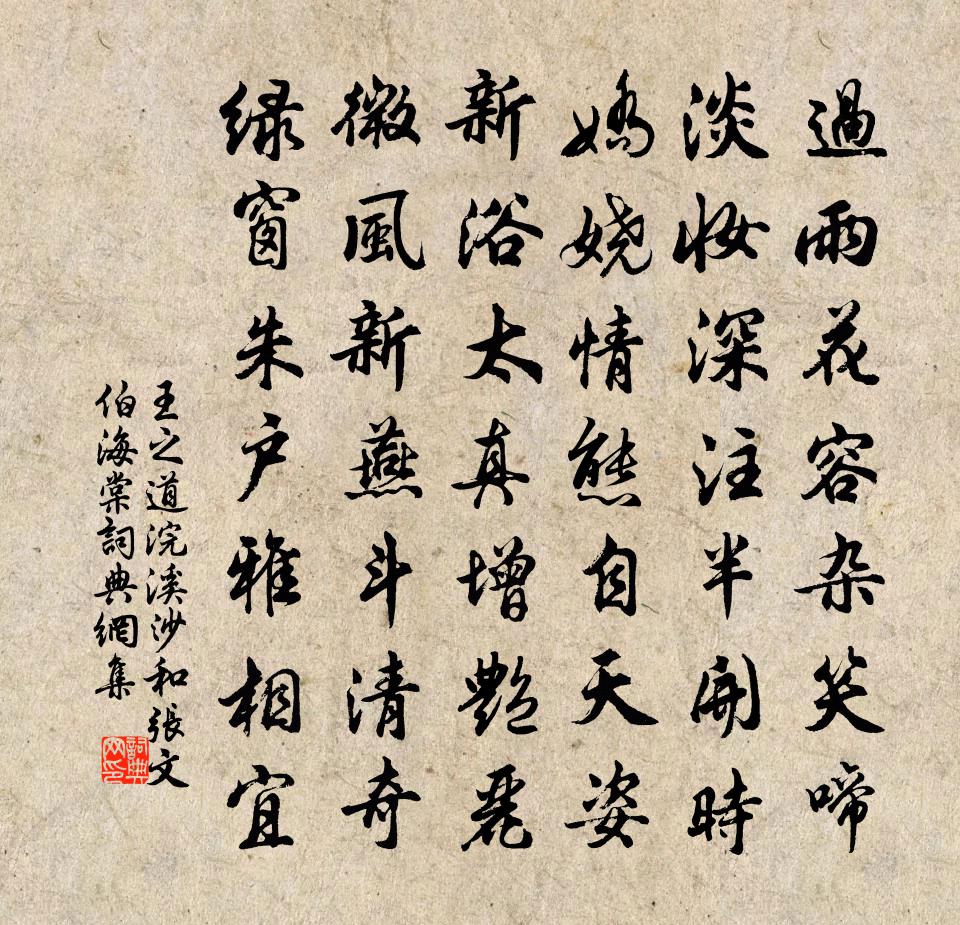 過雨花容杂笑啼
淡妝深注半開時
嬌嬈情態自天姿
新浴太真增艷麗
微風新燕斗清奇
绿窗朱户雅相宜
王之道浣溪沙和張文
伯海棠詞典網集
詞典
网印